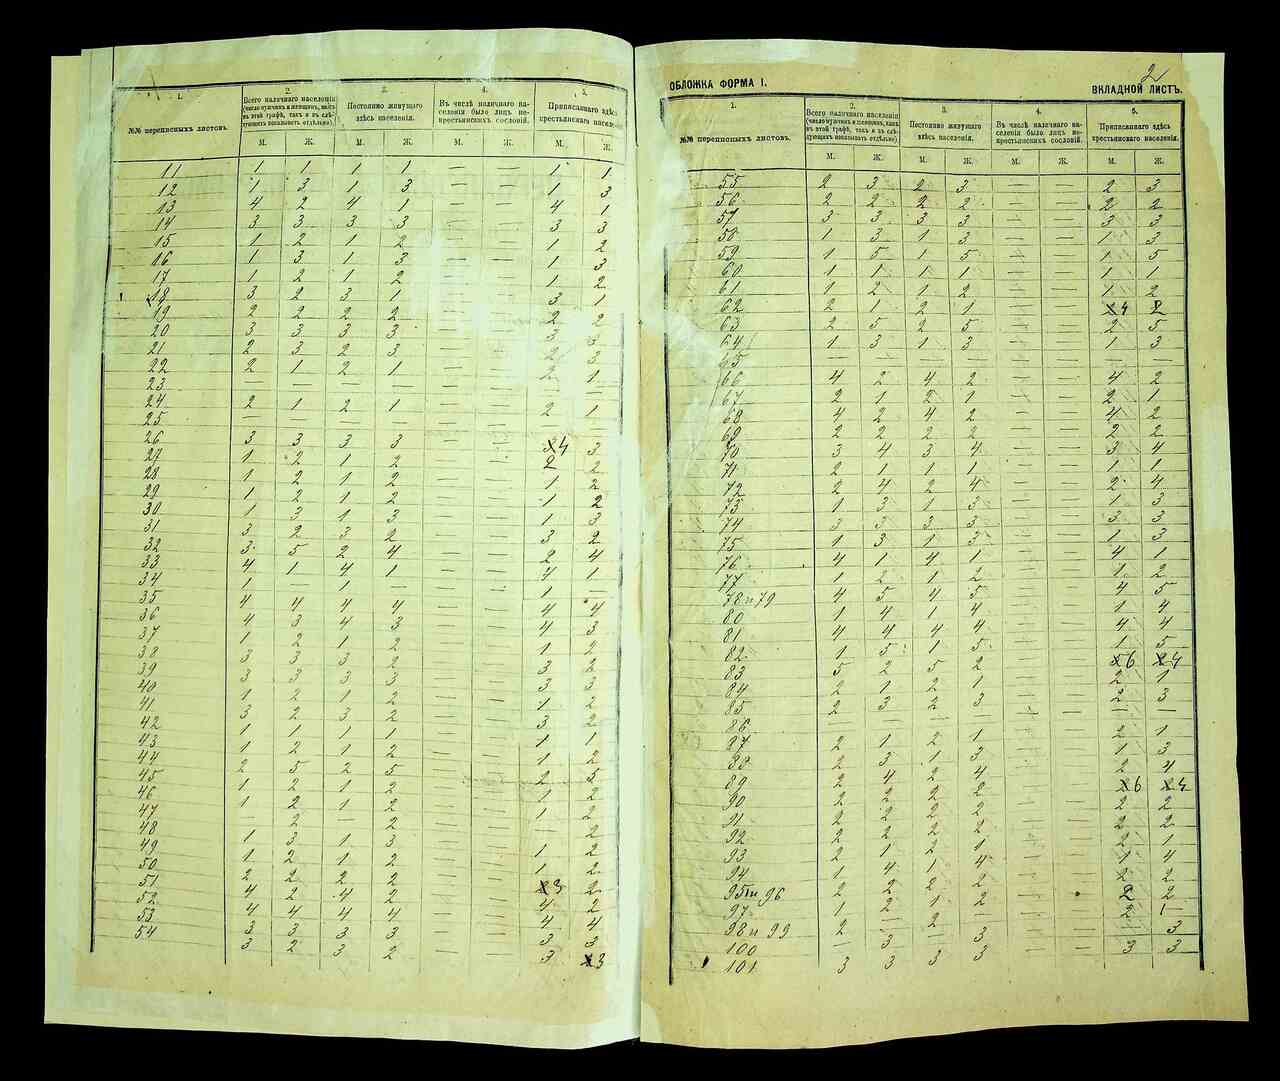 1. 2. 3. 4. 5.
№№ переписныхъ листовъ. Всего наличнаго населенія (число мужчин и женщин, какъ въ этой графѣ, такъ и въ слѣдующихъ показывать отдѣльно). Постоянно живущаго здѣсь населенія. Въ числѣ наличнаго населенія было лицъ некрестьянскихъ сословій. Приписаннаго здѣсь крестьянскаго населенія.
М. Ж. М. Ж. М. Ж. М. Ж.
11 1 1 1 1 — — 1 1
12 1 3 1 3 — — 1 3
13 4 2 4 1 — — 4 1
14 3 3 3 3 — — 3 3
15 1 2 1 2 — — 1 2
16 1 3 1 3 — — 1 3
17 1 2 1 2 — — 1 2
18 3 2 3 1 — — 3 1
19 2 2 2 2 — — 2 2
20 3 3 3 3 — — 3 3
21 2 3 2 3 — — 2 3
22 2 1 2 1 — — 2 1
23 — — — — — — — —
24 2 1 2 1 — — 2 1
25 — — — — — — — —
26 3 3 3 3 — — 4 3
27 1 2 1 2 — — 2 2
28 1 2 1 2 — — 1 2
29 1 2 1 2 — — 1 2
30 1 3 1 3 — — 1 3
31 3 2 3 2 — — 3 2
32 3 5 2 4 — — 2 4
33 4 1 4 1 — — 4 1
34 1 — 1 — — — 1 —
35 4 4 4 4 — — 4 4
36 4 3 4 3 — — 4 3
37 1 2 1 2 — — 1 2
38 3 3 3 2 — — 3 2
39 3 3 3 3 — — 3 3
40 1 2 1 2 — — 1 2
41 3 2 3 2 — — 3 2
42 1 1 1 1 — — 1 1
43 1 2 1 2 — — 1 2
44 2 5 2 5 — — 2 5
45 1 2 1 2 — — 1 2
46 1 2 1 2 — — 1 2
47 — 2 — 2 — — — 2
48 1 3 1 3 — — 1 2
49 1 2 1 2 — — 1 2
50 2 2 2 2 — — 3 2
51 4 2 4 2 — — 4 2
52 4 4 4 4 — — 4 4
53 3 3 3 3 — — 3 3
54 3 2 3 2 — — 3 3
2
ОБЛОЖКА ФОРМА I. ВКЛАДНОЙ ЛИСТЪ.
1. 2. 3. 4. 5.
№№ переписныхъ листовъ. Всего наличнаго населенія (число мужчин и женщин, какъ въ этой графѣ, такъ и въ слѣдующихъ показывать отдѣльно). Постоянно живущаго здѣсь населенія. Въ числѣ наличнаго населенія было лицъ некрестьянскихъ сословій. Приписаннаго здѣсь крестьянскаго населенія.
М. Ж. М. Ж. М. Ж. М. Ж.
55 2 3 2 3 — — 2 3
56 2 2 2 2 — — 2 2
57 3 3 3 3 — — 3 3
58 1 3 1 3 — — 1 3
59 1 5 1 5 — — 1 5
60 1 1 1 1 — — 1 1
61 1 2 1 2 — — 1 2
62 2 1 2 1 — — 4 2
63 2 5 2 5 — — 2 5
64 1 3 1 3 — — 1 3
65 — — — — — — — —
66 4 2 4 2 — — 4 2
67 2 1 2 1 — — 2 1
68 4 2 4 2 — — 4 2
69 2 2 2 2 — — 2 2
70 3 4 3 4 — — 3 4
71 2 1 1 1 — — 1 1
72 2 4 2 4 — — 2 4
73 1 3 1 3 — — 1 3
74 3 3 3 3 — — 3 3
75 1 3 1 3 — — 1 3
76 4 1 4 1 — — 4 1
77 1 2 1 2 — — 1 2
78и79 4 5 4 5 — — 4 5
80 1 4 1 4 — — 1 4
81 4 4 4 4 — — 4 4
82 1 5 1 5 — — 1 5
83 5 2 5 2 — — 6 4
84 2 1 2 1 — — 2 1
85 2 3 2 3 — — 2 3
86 — — — — — — — —
87 2 1 2 1 — — 2 1
88 2 3 1 3 — — 1 3
89 2 4 2 4 — — 2 4
90 2 2 2 2 — — 6 4
91 2 2 2 2 — — 2 2
92 2 2 2 2 — — 2 2
93 2 1 2 1 — — 2 1
94 1 4 1 4 — — 1 4
95и96 2 2 2 2 — — 2 2
97 1 2 1 2 — — 2 2
98и99 2 — 2 — — — 2 —
100 — 3 — 3 — — — 3
101 3 3 3 3 — — 3 3